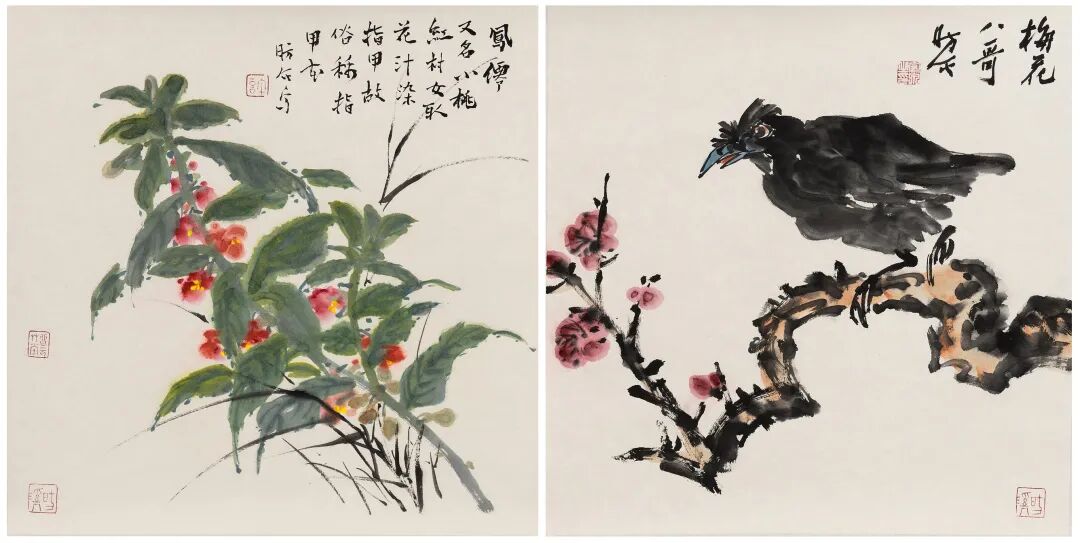 鳳僊
又名小桃
紅村女取
花汁染
指甲故
俗稱指
甲花
梅花
八哥